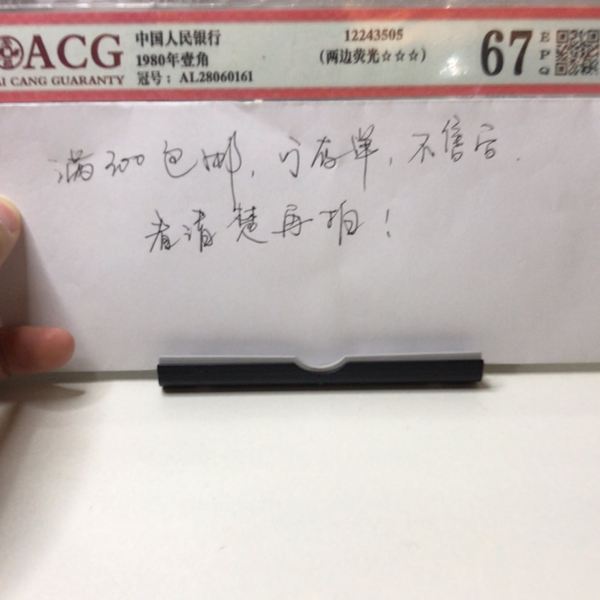 ACG
AI CANG GUARANTY
中国人民银行
1980年壹角
冠号：AL28060161
12243505
(两边荧光☆☆☆)
67
EPQ
满300包邮，可存单，不售后.
看清楚再拍！